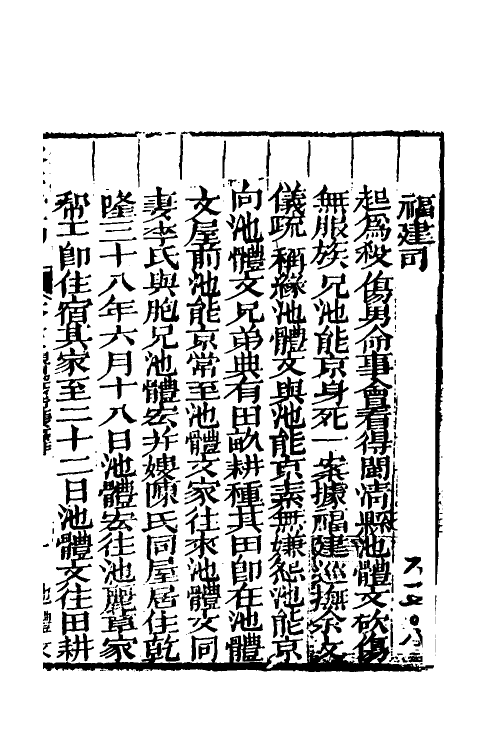 福建司
起為殺傷男命事會看得閩清縣池體文砍傷
無服族兄池能京身死一案據福建巡撫余文
儀疏稱緣池體文與池能京素無嫌怨池能京
向池體文兄弟典有田畝耕種其田即在池體
文屋前池能京常至池體文家往來池體文同
妻李氏與胞兄池體宏并嫂陳氏同屋居住乾
隆三十八年六月十八日池體宏往池麗草家
幫工即住宿其家至二十二日池體文往田耕
池體文